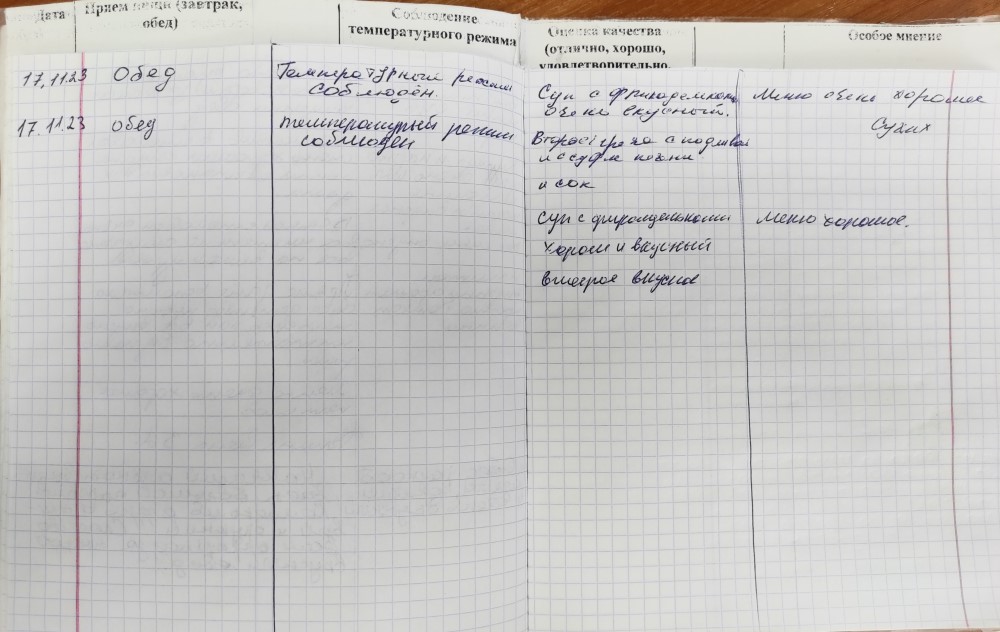 Дата
Прием пищи (завтрак,
обед)
Соблюдение
температурного режима
Оценка качества
(отлично, хорошо,
удовлетворительно,
Особое мнение
17.11.23 Обед Температурный режим
соблюдён.
Суп с фрикадельками
очень вкусный.
Второе: греча с подливой
и суфле печени
и сок
Меню очень хорошее
Сухих
17.11.23 обед температурный режим
соблюден
Суп с фрикадельками
хорош и вкусный
второе вкусное
Меню хорошее.